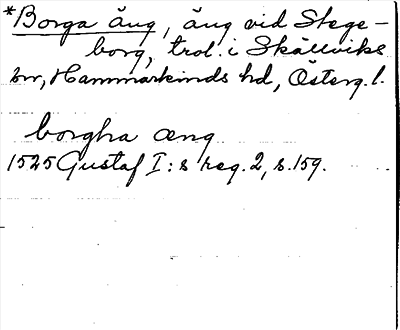 *Borga äng, äng vid Stege-
borg, trol. i Skällviks
sn, Hammarkinds hd, Österg. l.
borgha æng
1525 Gustaf I:s reg. 2, s. 159.